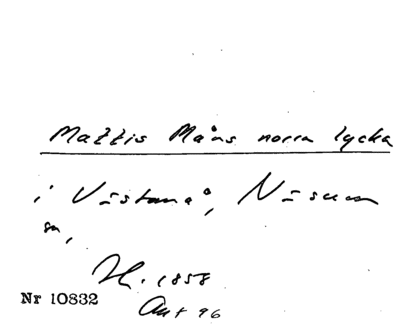 Mattis Måns norra lycka
i Västanå, Näsum
sn,
H. 1858
Nr 10832
Akt 96